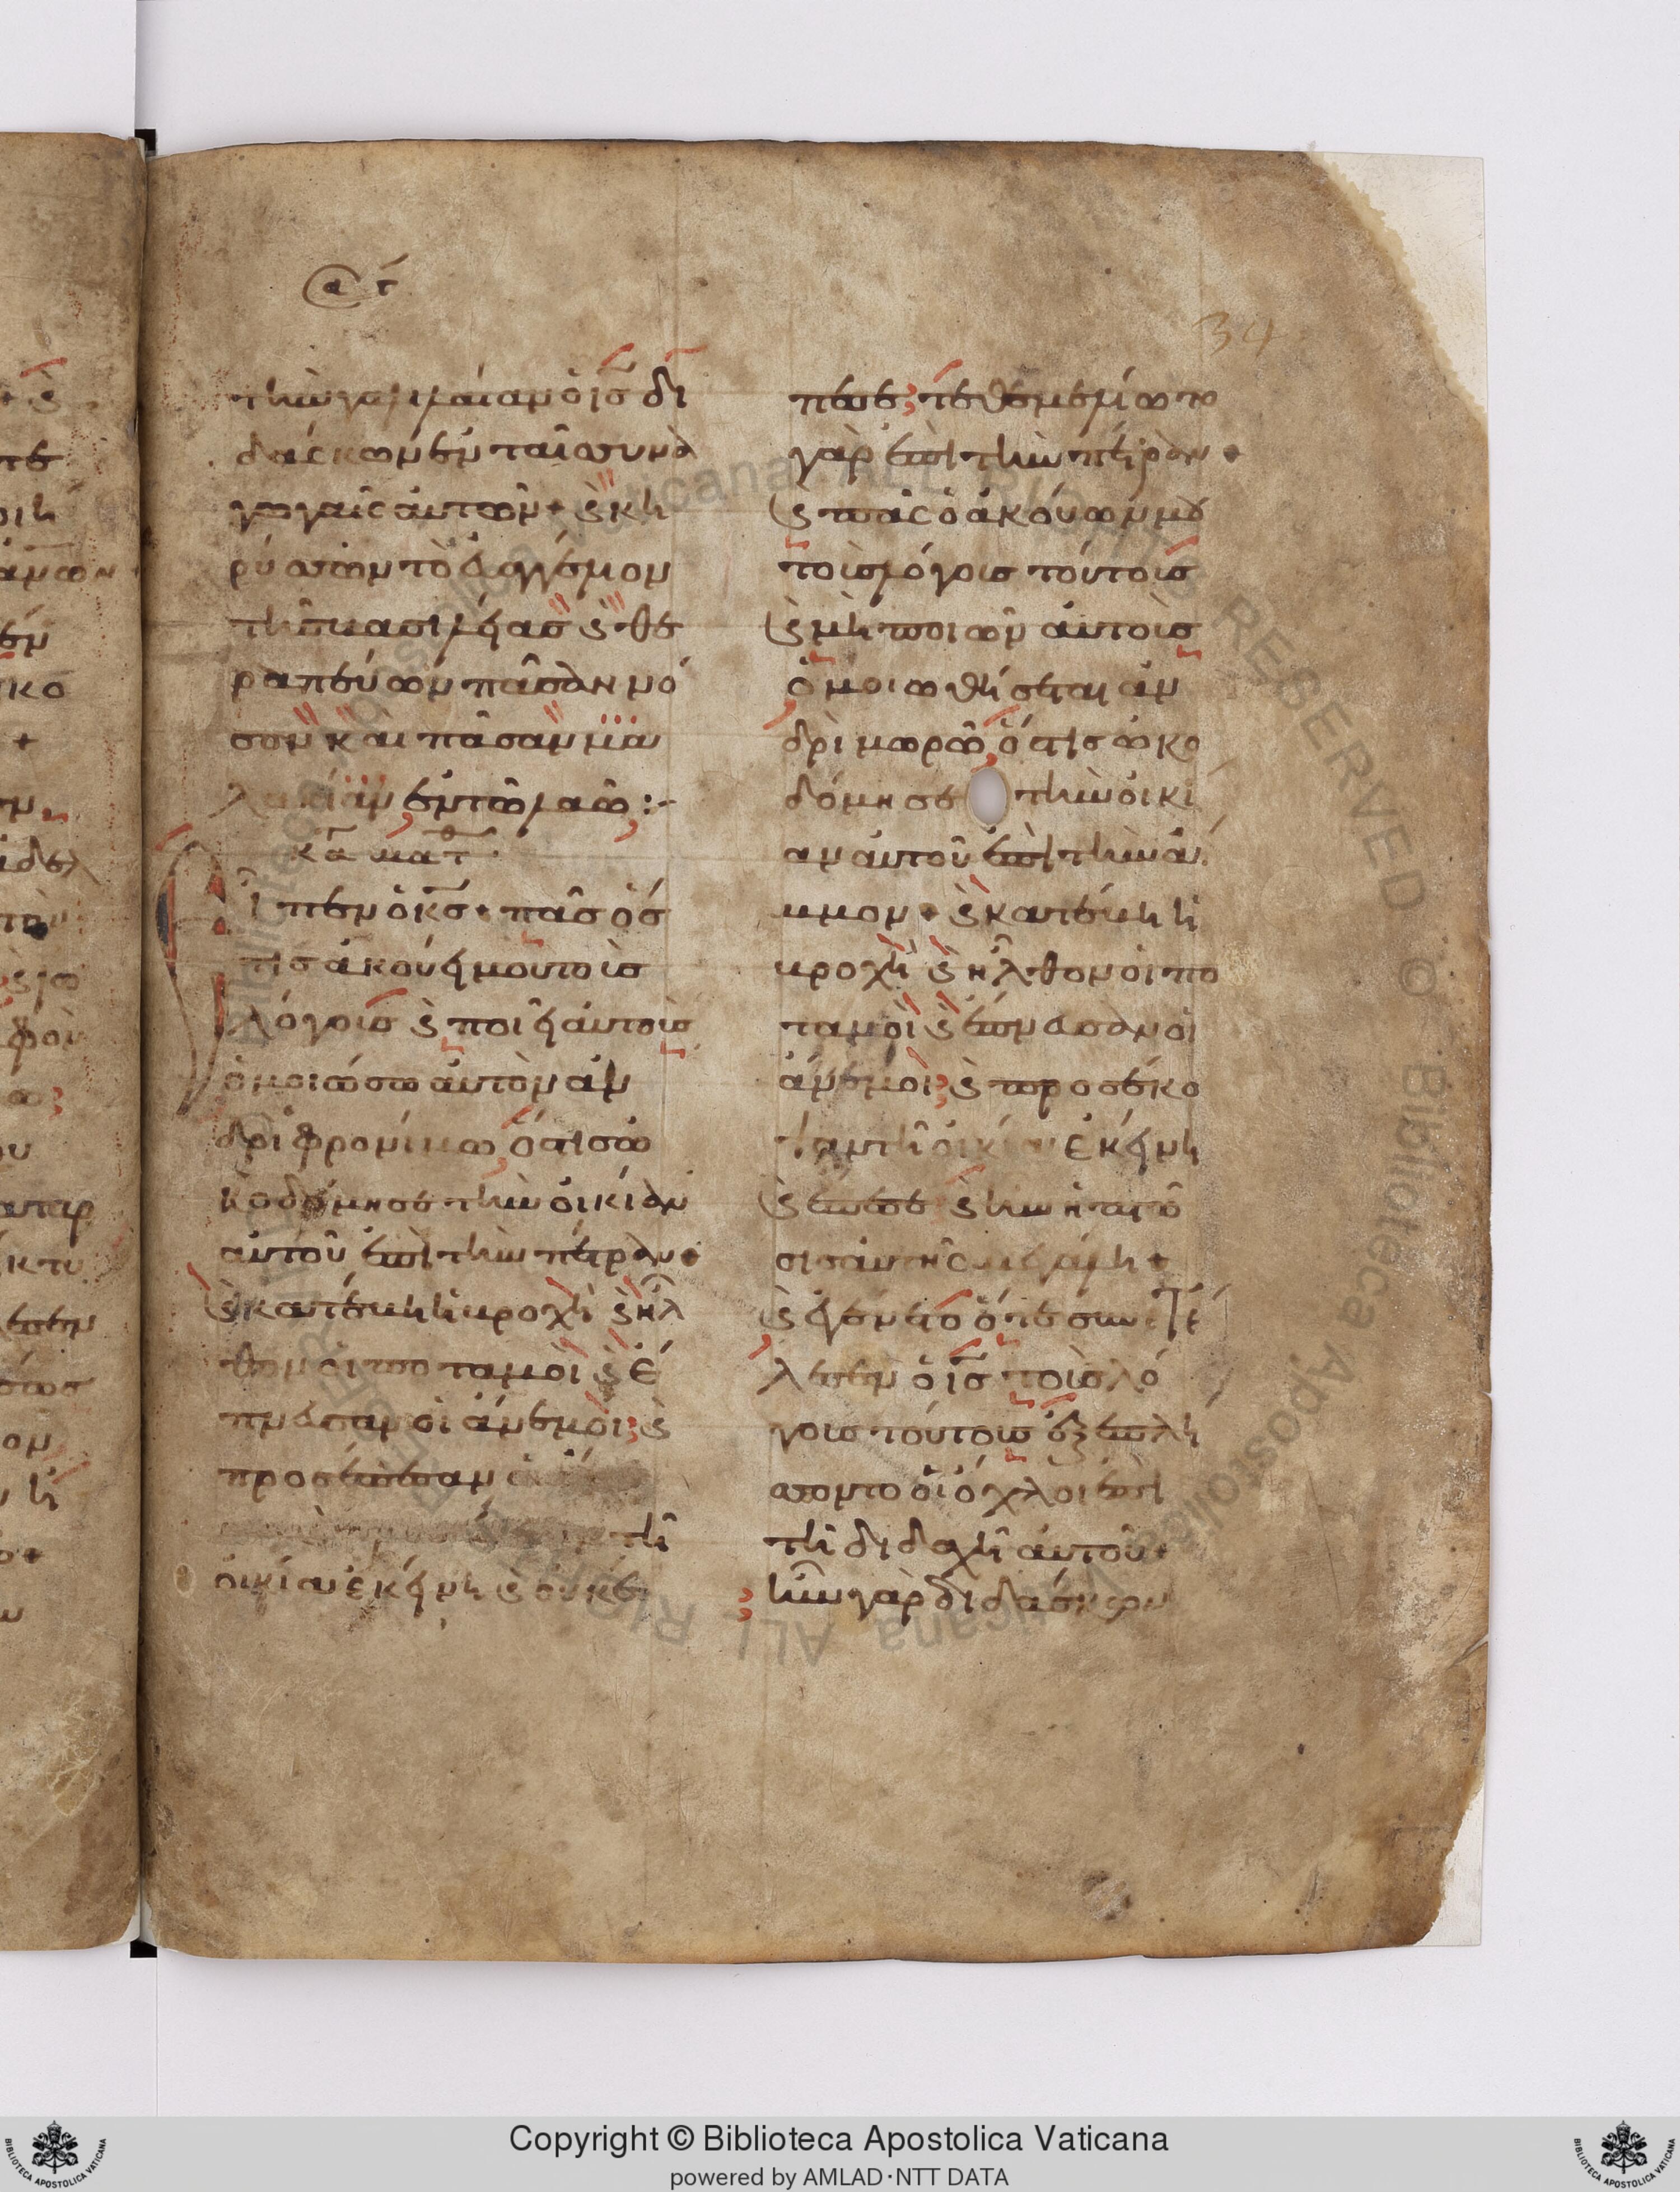 34
τὴν γαλιλαίαν ὁ ις δι
δάσκων ἐν ταῖσ συνα
γωγαῖς αὐτῶν + ϗ κη
ρύσσων τὸ εὐαγγέλιον
τῆσ βασιλείασ ϗ θε
ραπεύων πᾶσαν νό
σον καὶ πᾶσαν μα
λακίαν ἐν τῶ λαῶ :-
κα ματθ
Εἶπεν ὁ κσ + πᾶσ ὅσ
τισ ἀκούει μου τοὺσ
λόγουσ ϗ ποιεῖ αὐτοὺσ
ὁμοιώσω αὐτὸν ἀν
δρὶ φρονίμω ὅστισ ὠ
κοδόμησε τὴν οἰκίαν
αὐτοῦ ἐπὶ τὴν πέτραν +
ϗ κατέβη ἡ βροχὴ ϗ ἦλ
θον οἱ ποταμοὶ ϗ ἔ
πνευσαν οἱ ἄνεμοι ; ϗ
προσέπεσαν
τῆ
οἰκία ἐκείνη ϗ οὐκ ἔ
πεσε ; τεθεμελίωτο
γὰρ ἐπὶ τὴν πέτραν +
ϗ πᾶς ὁ ἀκούων μου
τοὺσ λόγουσ τούτουσ
ϗ μὴ ποιῶν αὐτοὺσ
ὁμοιωθήσεται ἀν
δρὶ μωρῶ, ὅστισ ὠκο
δόμησε τὴν οἰκί
αν αὐτοῦ ἐπὶ τὴν ἄμ
μμον + ϗ κατέβη ἡ
βροχὴ ϗ ἦλθον οἱ πο
ταμοὶ ϗ ἔπνευσαν οἱ
ἄνεμοι ; ϗ προσέκο
ψαν τῆ οἰκία ἐκείνη
ϗ ἔπεσε ϗ ἦν ἡ πτῶ
σισ αὐτῆς μεγάλη +
ϗ ἐγένετο ὅτε συνετέ
λεσεν ὁ ισ τοὺσ λό
γουσ τούτουσ ἐξεπλή
σσοντο οἱ ὄχλοι ἐπὶ
τῆ διδαχῆ αὐτοῦ +
ἦν γὰρ διδάσκων
Copyright © Biblioteca Apostolica Vaticana
powered by AMLAD·NTT DATA